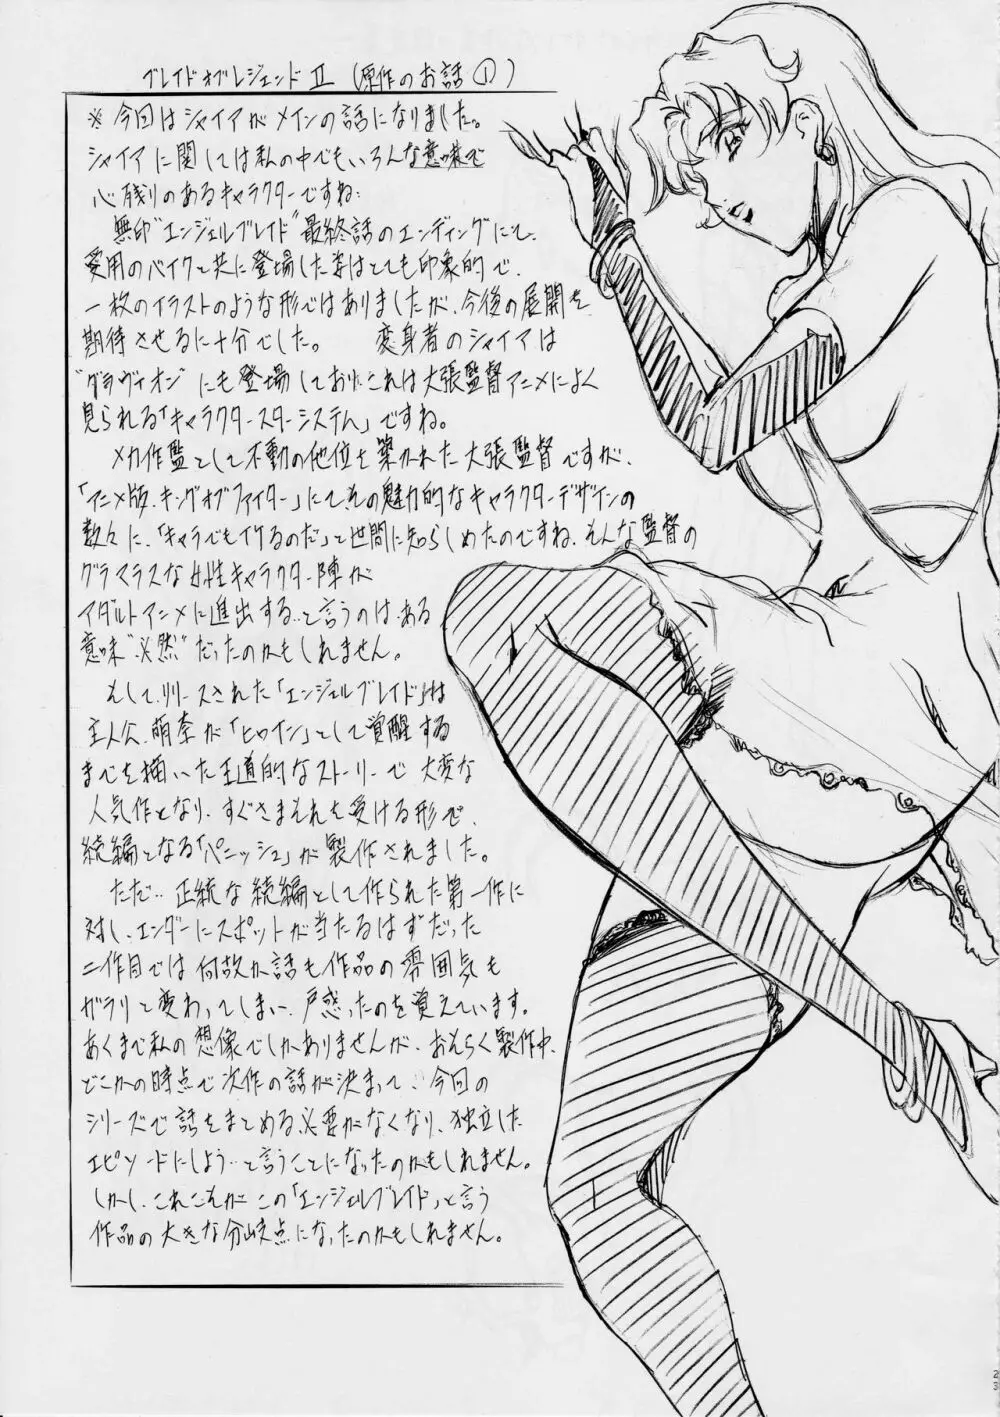 ブレイドオブレジェンドⅡ(原作のお話①)
※今回はシャイアがメインの話になりました。
シャイアに関しては私の中でもいろんな意味で
心残りのあるキャラクターですね…
無印"エンジェルブレイド"最終話のエンディングにて、
愛用のバイクと共に登場した姿はとても印象的で、
一枚のイラストのような形ではありましたが、今後の展開を
期待させるに十分でした。 変身者のシャイアは
"グラヴィオン"にも登場しており、これは大張監督アニメによく
見られる「キャラクタースターシステム」ですね。
メカ作監として不動の地位を築かれた大張監督ですが、
「アニメ版・キングオブファイター」にて、その魅力的なキャラクターデザインの
数々に、「キャラでもイケるのだ」と世間に知らしめたのですね、そんな監督の
グラマラスな女性キャラクター陣が
アダルトアニメに進出する…と言うのは、ある
意味"必然"だったのかもしれません。
そして、リリースされた「エンジェルブレイド」は
主人公、萌奈が「ヒロイン」として覚醒する
までを描いた王道的なストーリーで 大変な
人気作となり、すぐさまそれを受ける形で、
続編となる「パニッシュ」が製作されました。
ただ… 正統な続編として作られた第一作に
対し、エンダーにスポットが当たるはずだった
二作目では何故か話も作品の雰囲気も
ガラリと変わってしまい、戸惑ったのを覚えています。
あくまで私の想像でしかありませんが、おそらく製作中、
どこかの時点で次作の話が決まって…今回の
シリーズで話をまとめる必要がなくなり、独立した
エピソードにしよう…と言うことになったのかもしれません。
しかし、これこそがこの「エンジェルブレイド」と言う
作品の大きな分岐点になったのかもしれません。
23